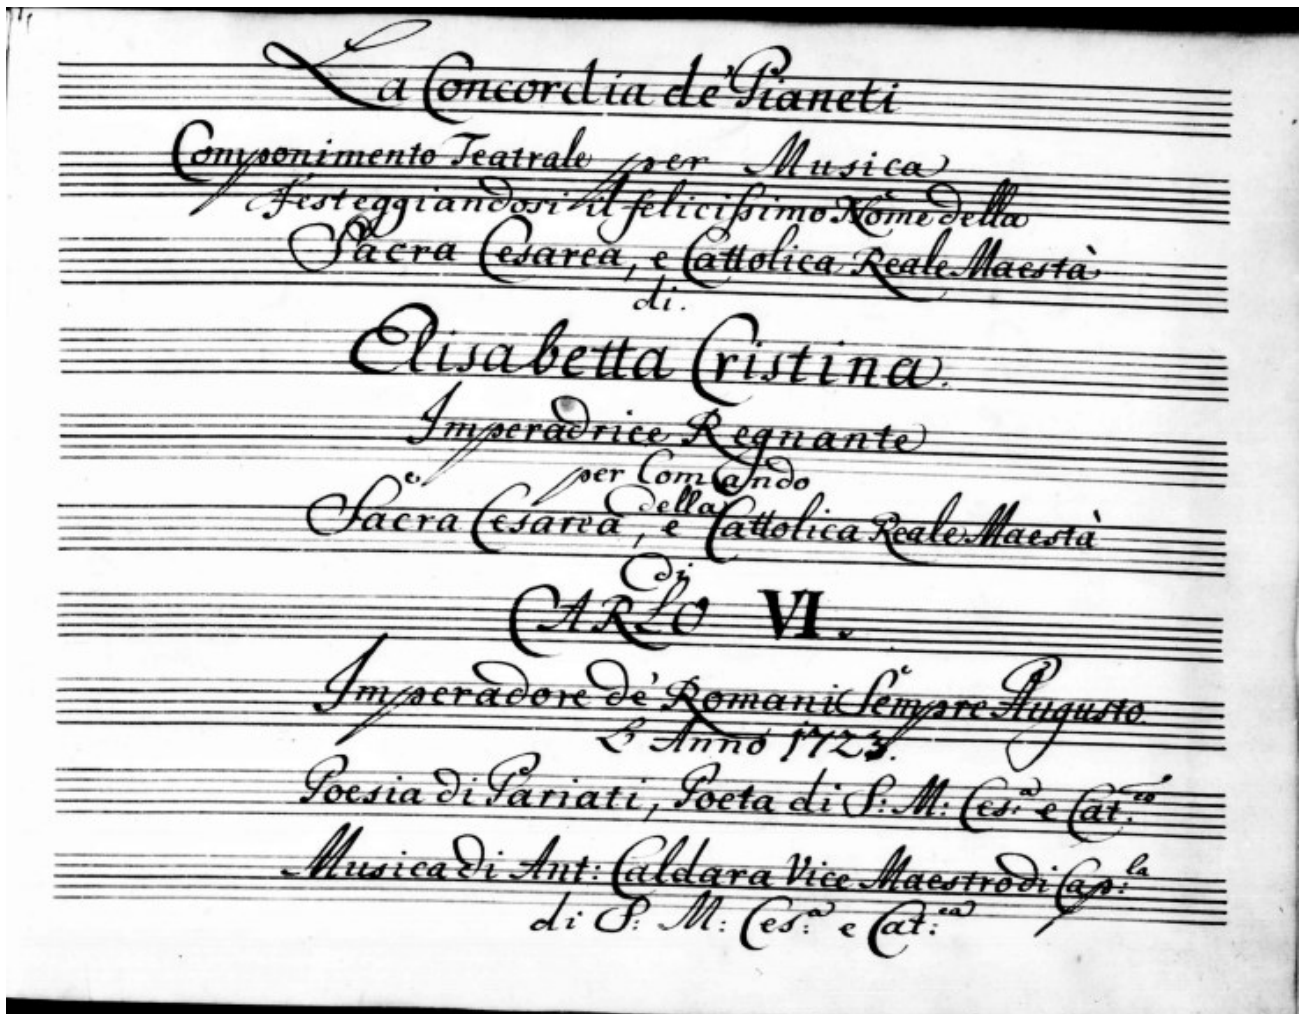 La Concordia de' Pianeti
Componimento Teatrale per Musica
Festeggiandosi il felicissimo Nome della
Sacra Cesarea, e Cattolica Reale Maestà
di.
Elisabetta Cristina.
Imperadrice Regnante
per Comando
della
Sacra Cesarea, e Cattolica Reale Maestà
Di
CARLO VI.
Imperadore de' Romani Sempre Augusto
L'Anno 1723.
Poesia di Pariati, Poeta di S: M: Ces:a e Cat:ca
Musica di Ant: Caldara Vice Maestro di Cap:la
di S: M: Ces:a e Cat:ca